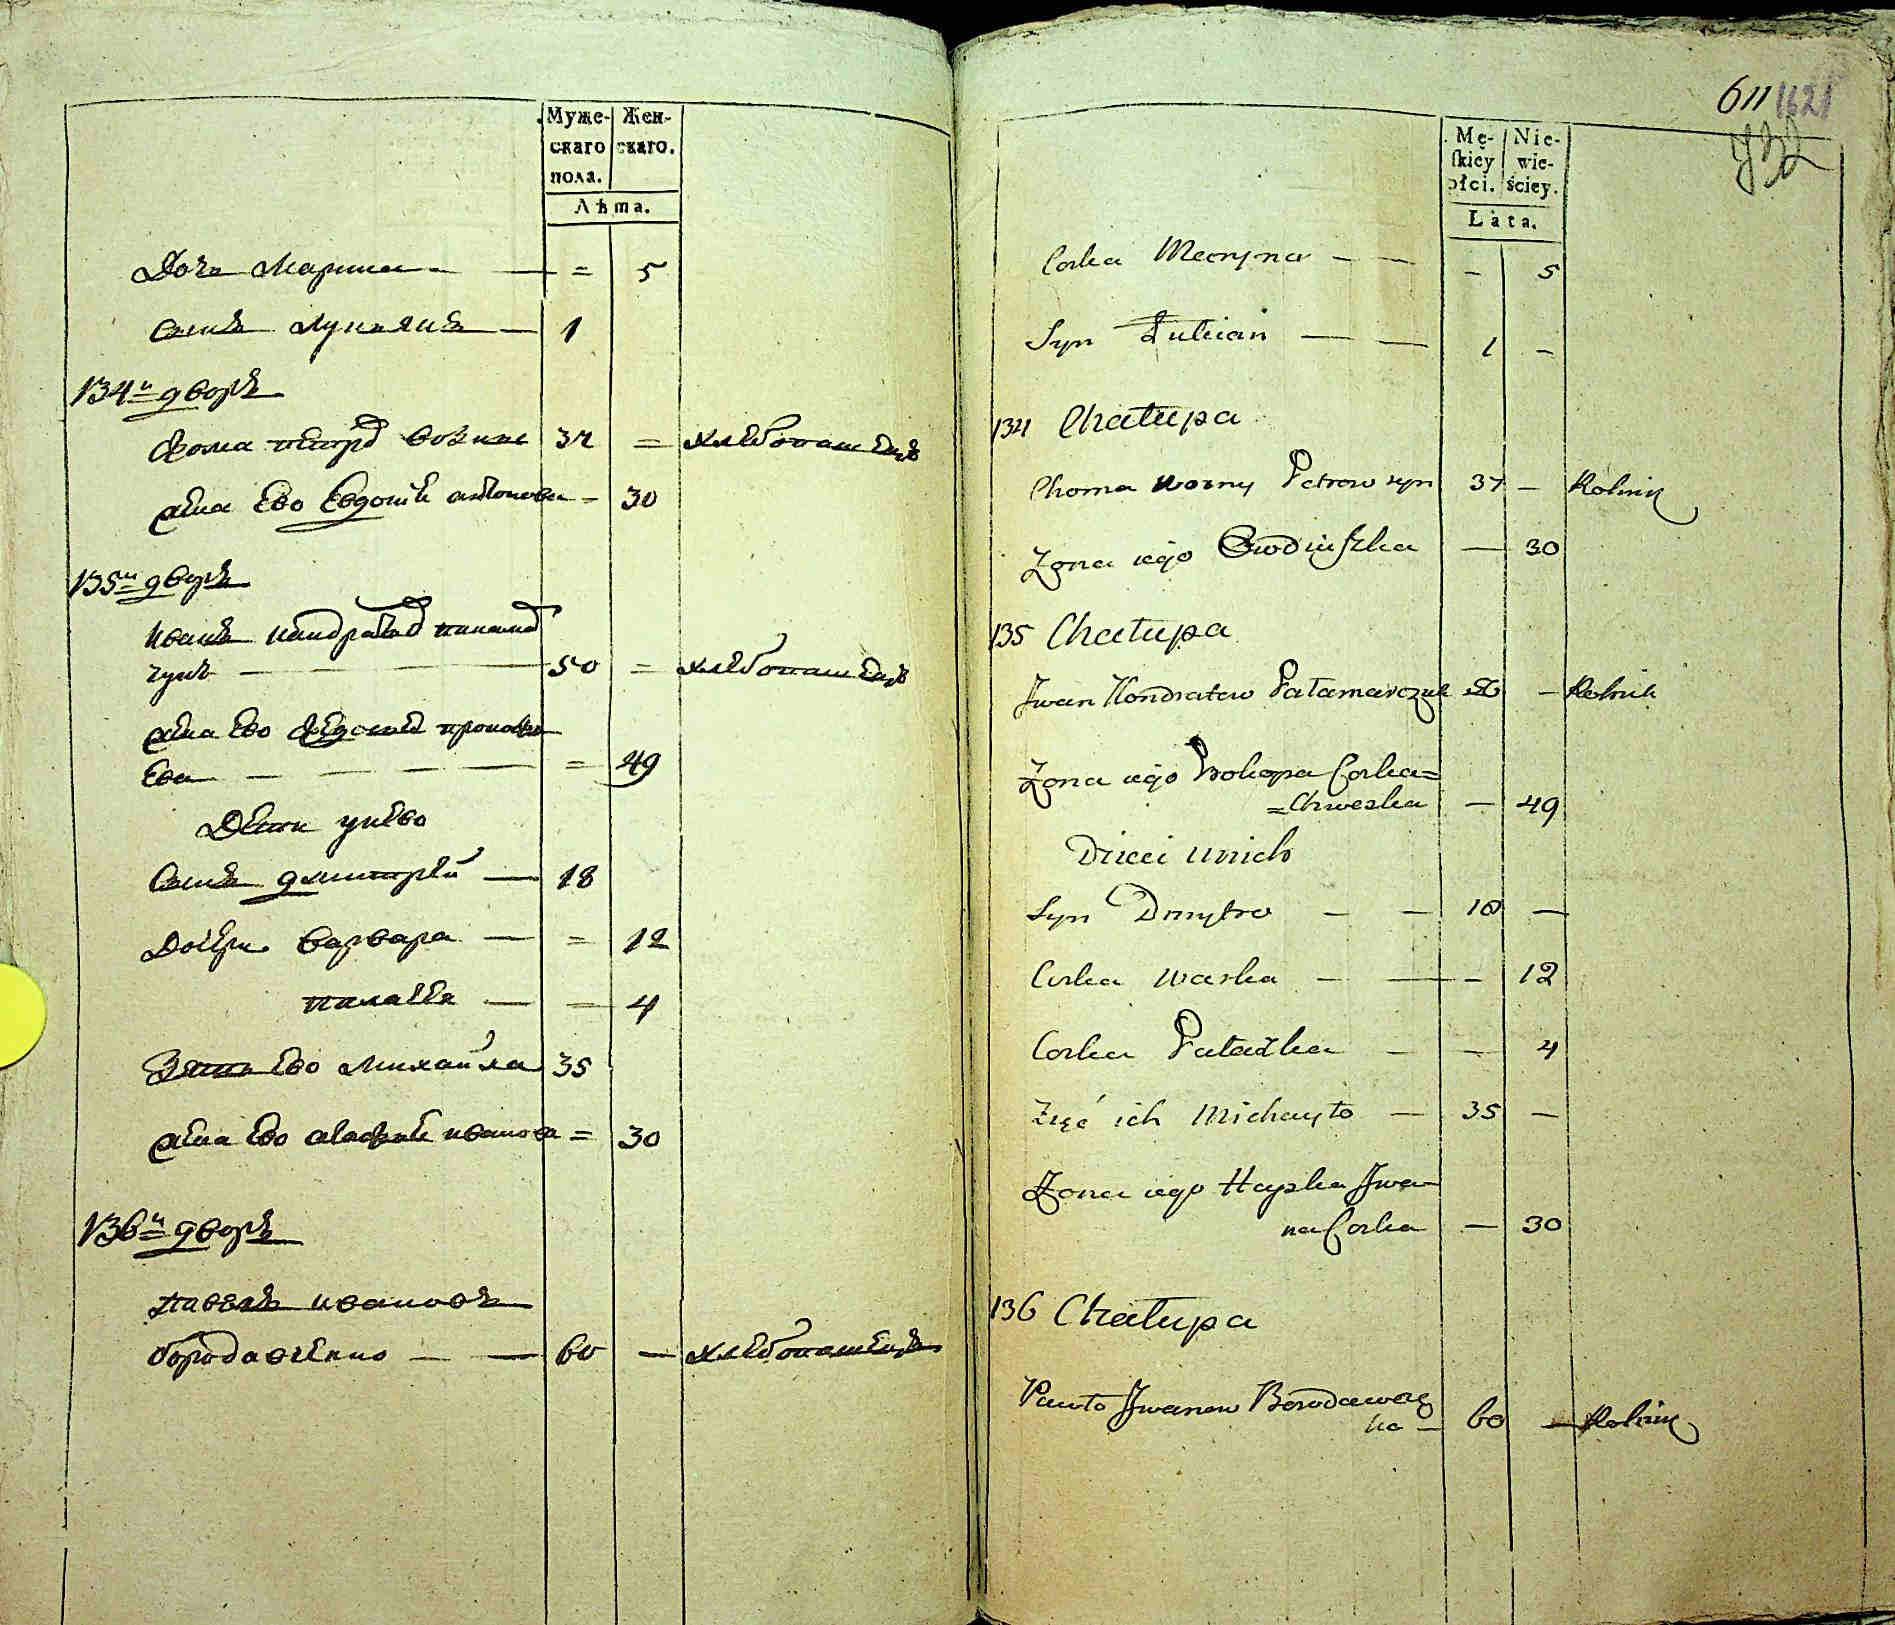 Муже-
скаго
пола.
Жен-
скаго.
Лѣта.
Дочь Марина — = 5
Сынъ Лукьянъ — 1
134й дворъ
Фома Петр возни 37 = хлѣбопашецъ
жена ево Евдокія антонова = 30
135й дворъ
Иванъ Кондратов паламар
чукъ — 50 = хлѣбопашецъ
жена ево Федосья прокофи
ева — = 49
Дети у нево
Сынъ дмитрей — 18
Дочери Варвара — = 12
палажка — = 4
Зять ево Михайла 35
жена ево иванова = 30
136й дворъ
Павелъ ивановъ
бородавченко — — 60 — хлѣбопашецъ
611 1621
732
Mę-
skiey
płci.
Nie-
wie-
ściey.
Lata.
Corka Maryna — — - 5
Syn Łukian — — 1 -
134 Chałupa
Choma wozny Petrow syn 37 — Rolnik
Zona iego Owdiuszka — 30
135 Chałupa
Jwan Kondratow Pałamarczuk 50 — Rolnik
Zona iego Prokopa Corka=
=Chweska — 49
Dzieci u nich
Syn Dmytro — — 18 —
Corka Warka — — - 12
Corka Pałażka — — 4
Zięć ich Michayło — 35 —
Zona iego Hapka Jwa-
na Corka — 30
136 Chałupa
Pawło Jwanow Borodawcz
ko — 60 — Rolnik